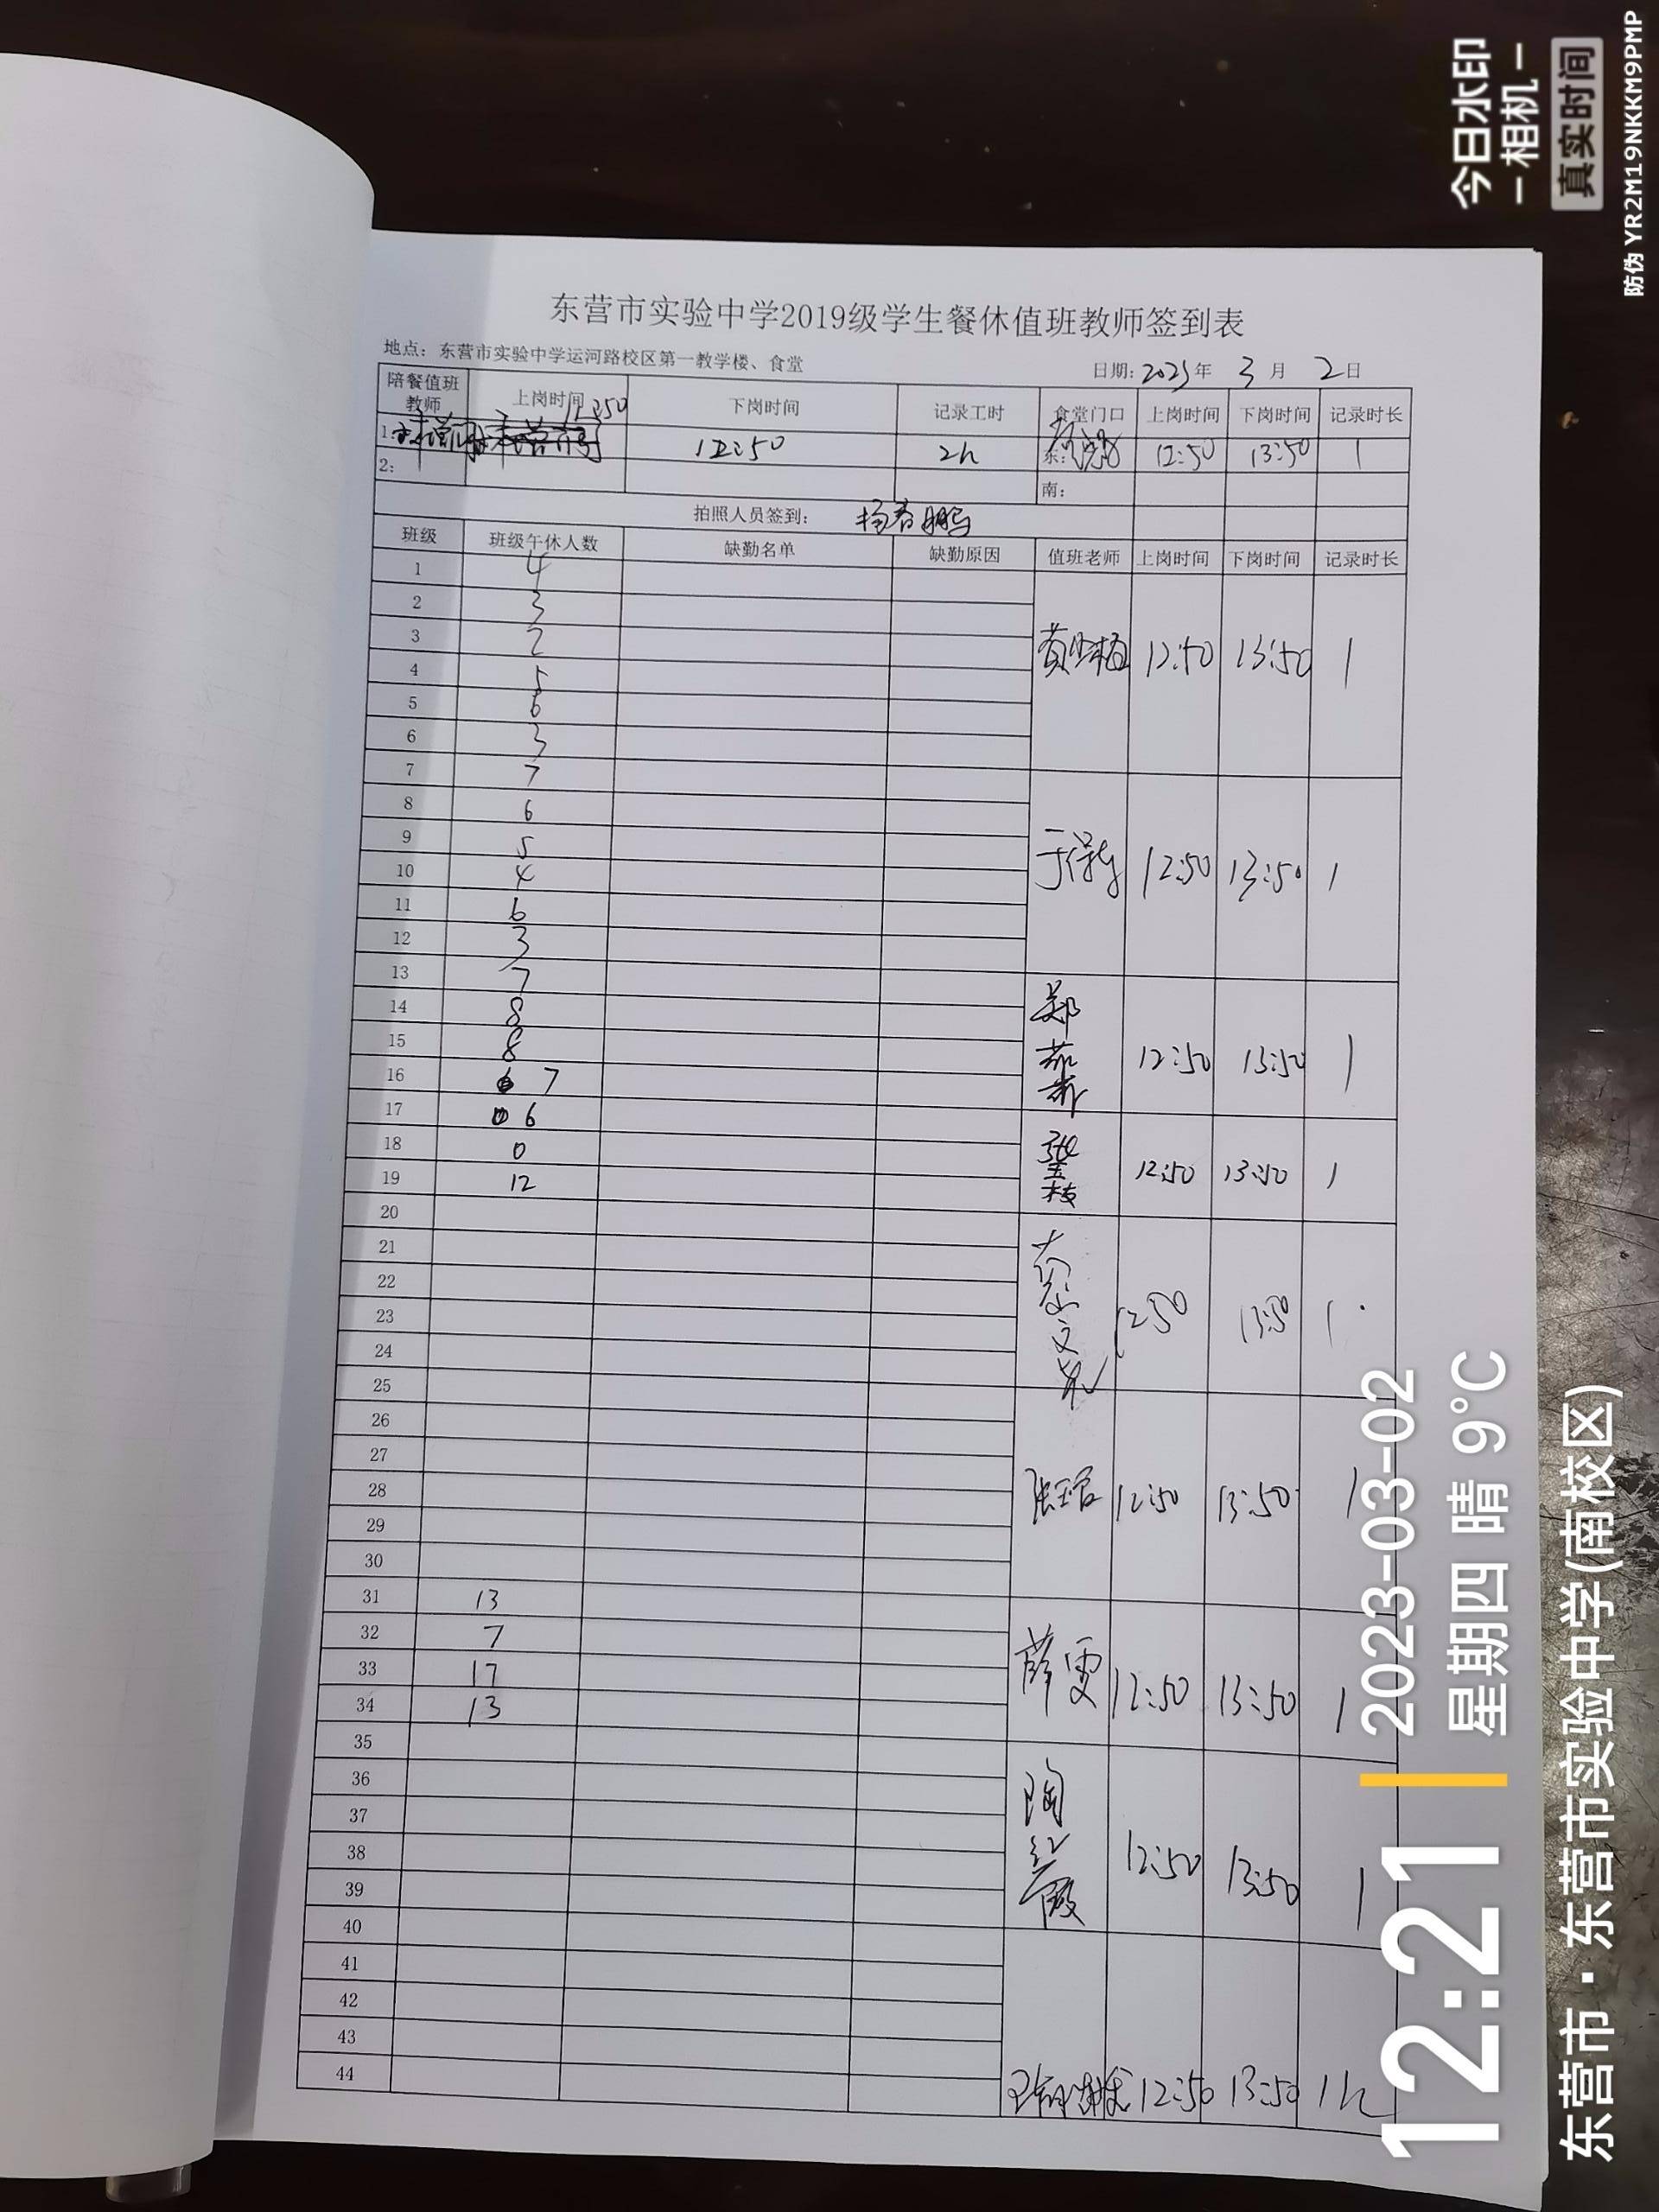 东营市实验中学2019级学生餐休值班教师签到表
地点：东营市实验中学运河路校区第一教学楼、食堂 日期：2023年 3月 2日
陪餐值班教师 上岗时间 下岗时间 记录工时 食堂门口 上岗时间 下岗时间 记录时长
11:50
1: 12:50 2h 东: 12:50 13:50 1
2: 南:
拍照人员签到： 杨春鹏
班级 班级午休人数 缺勤名单 缺勤原因 值班老师 上岗时间 下岗时间 记录时长
1 4
2 3
3 2
黄 12:50 13:50 1
4 5
5 6
6 3
7 7
8 6
9 5
于 12:50 13:50 1
10 4
11 6
12 3
13 7
14 8
15 8
郑 12:50 13:50 1
16 7
17 6
18 0
张玉枝 12:50 13:50 1
19 12
20
21
22
23
文 12:50 13:50 1
24
25
26
27
28
张 12:50 13:50 1
29
30
31 13
32 7
33 17
薛雯 12:50 13:50 1
34 13
35
36
37
38
陶红霞 12:50 13:50 1
39
40
41
42
43
44
王 12:50 13:50 1h
今日水印
-相机-
真实时间
防伪 YR2M19NKKM9PMP
12:21
2023-03-02
星期四 晴 9℃
东营市·东营市实验中学(南校区)